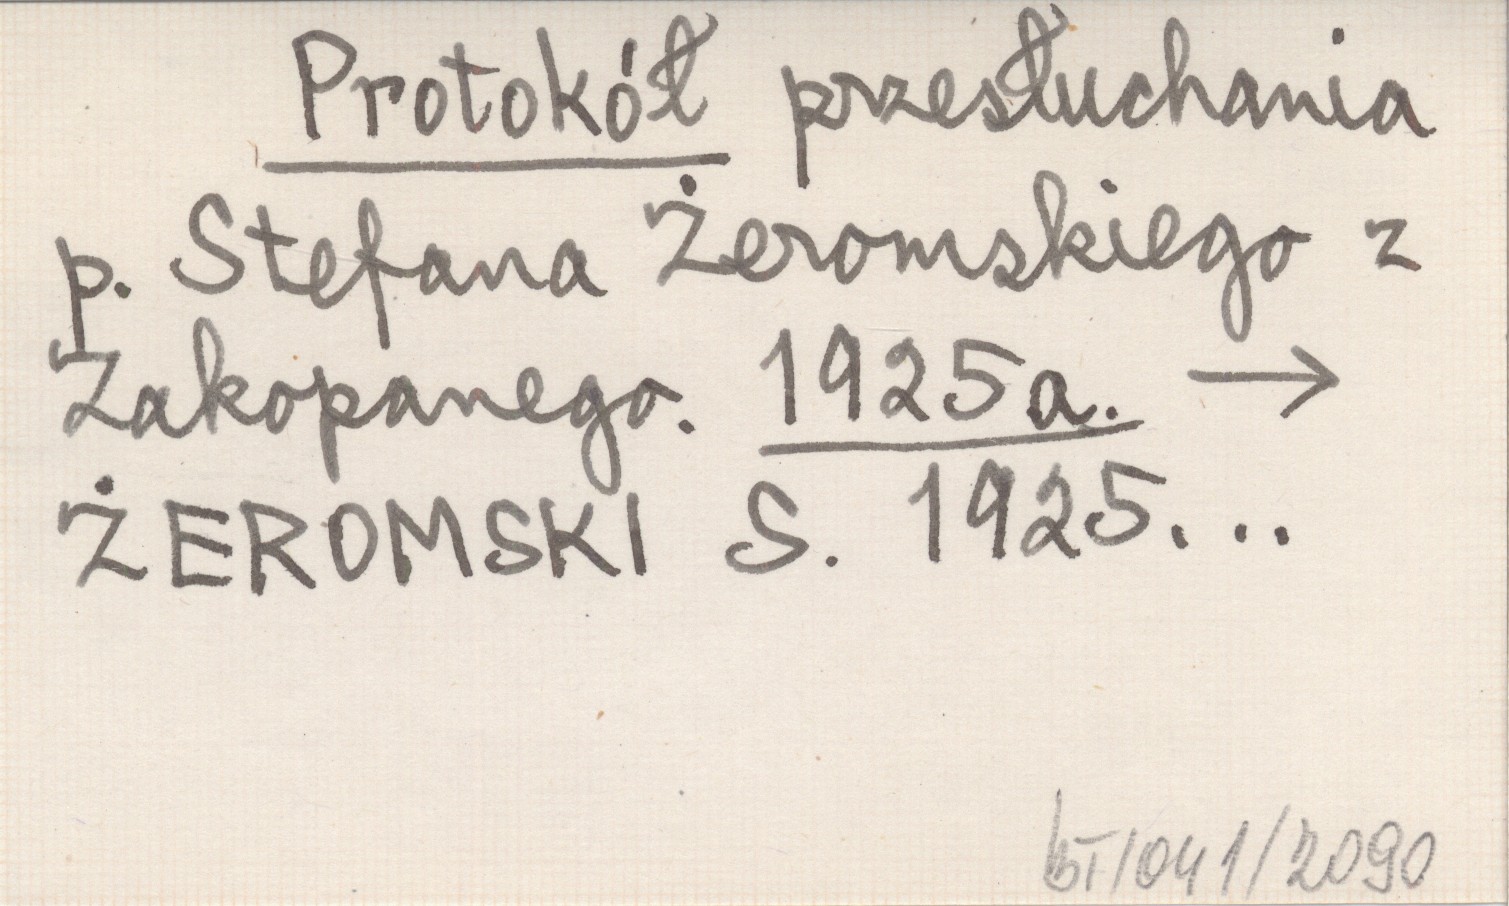 Protokół przesłuchania
p. Stefana Żeromskiego z
Zakopanego. 1925a. →
ŻEROMSKI S. 1925...
/041/2090